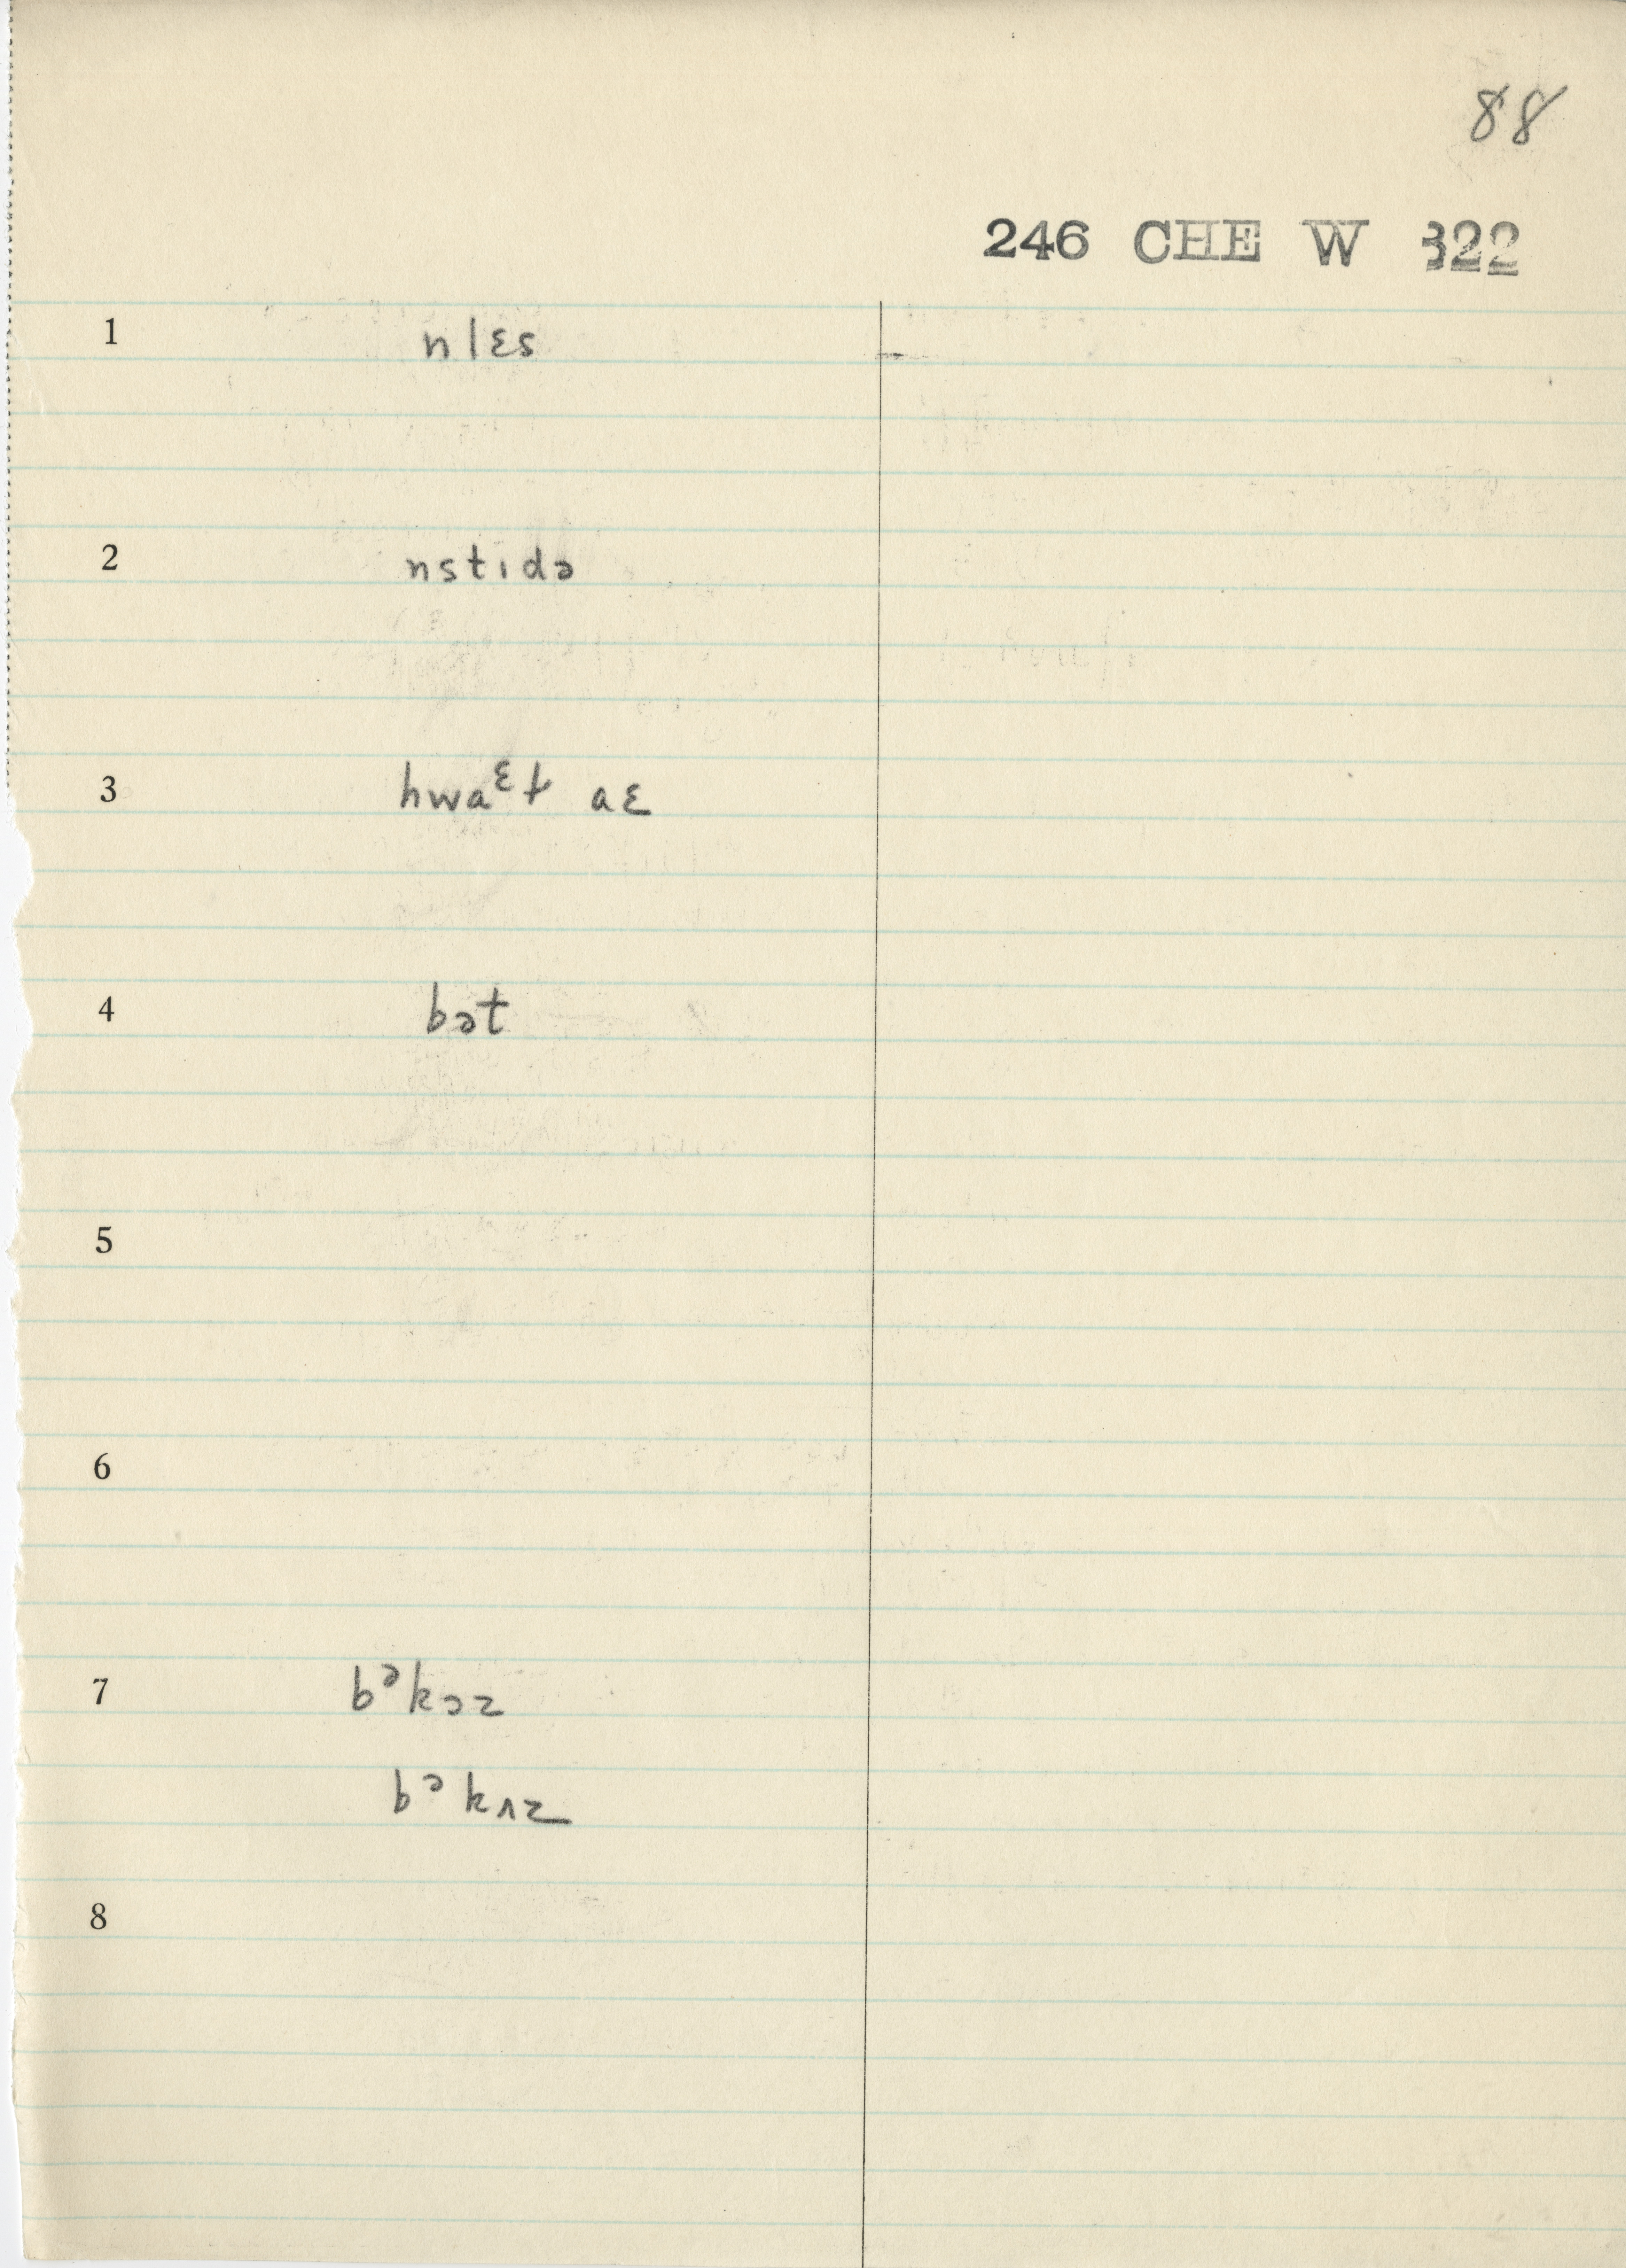 88
246 CHE W 322
1 nlɛs
2 nstidə
3 hwaᵋɫ aɛ
4 bət
5
6
7 bᵊkɔz
bᵊkʌz
8